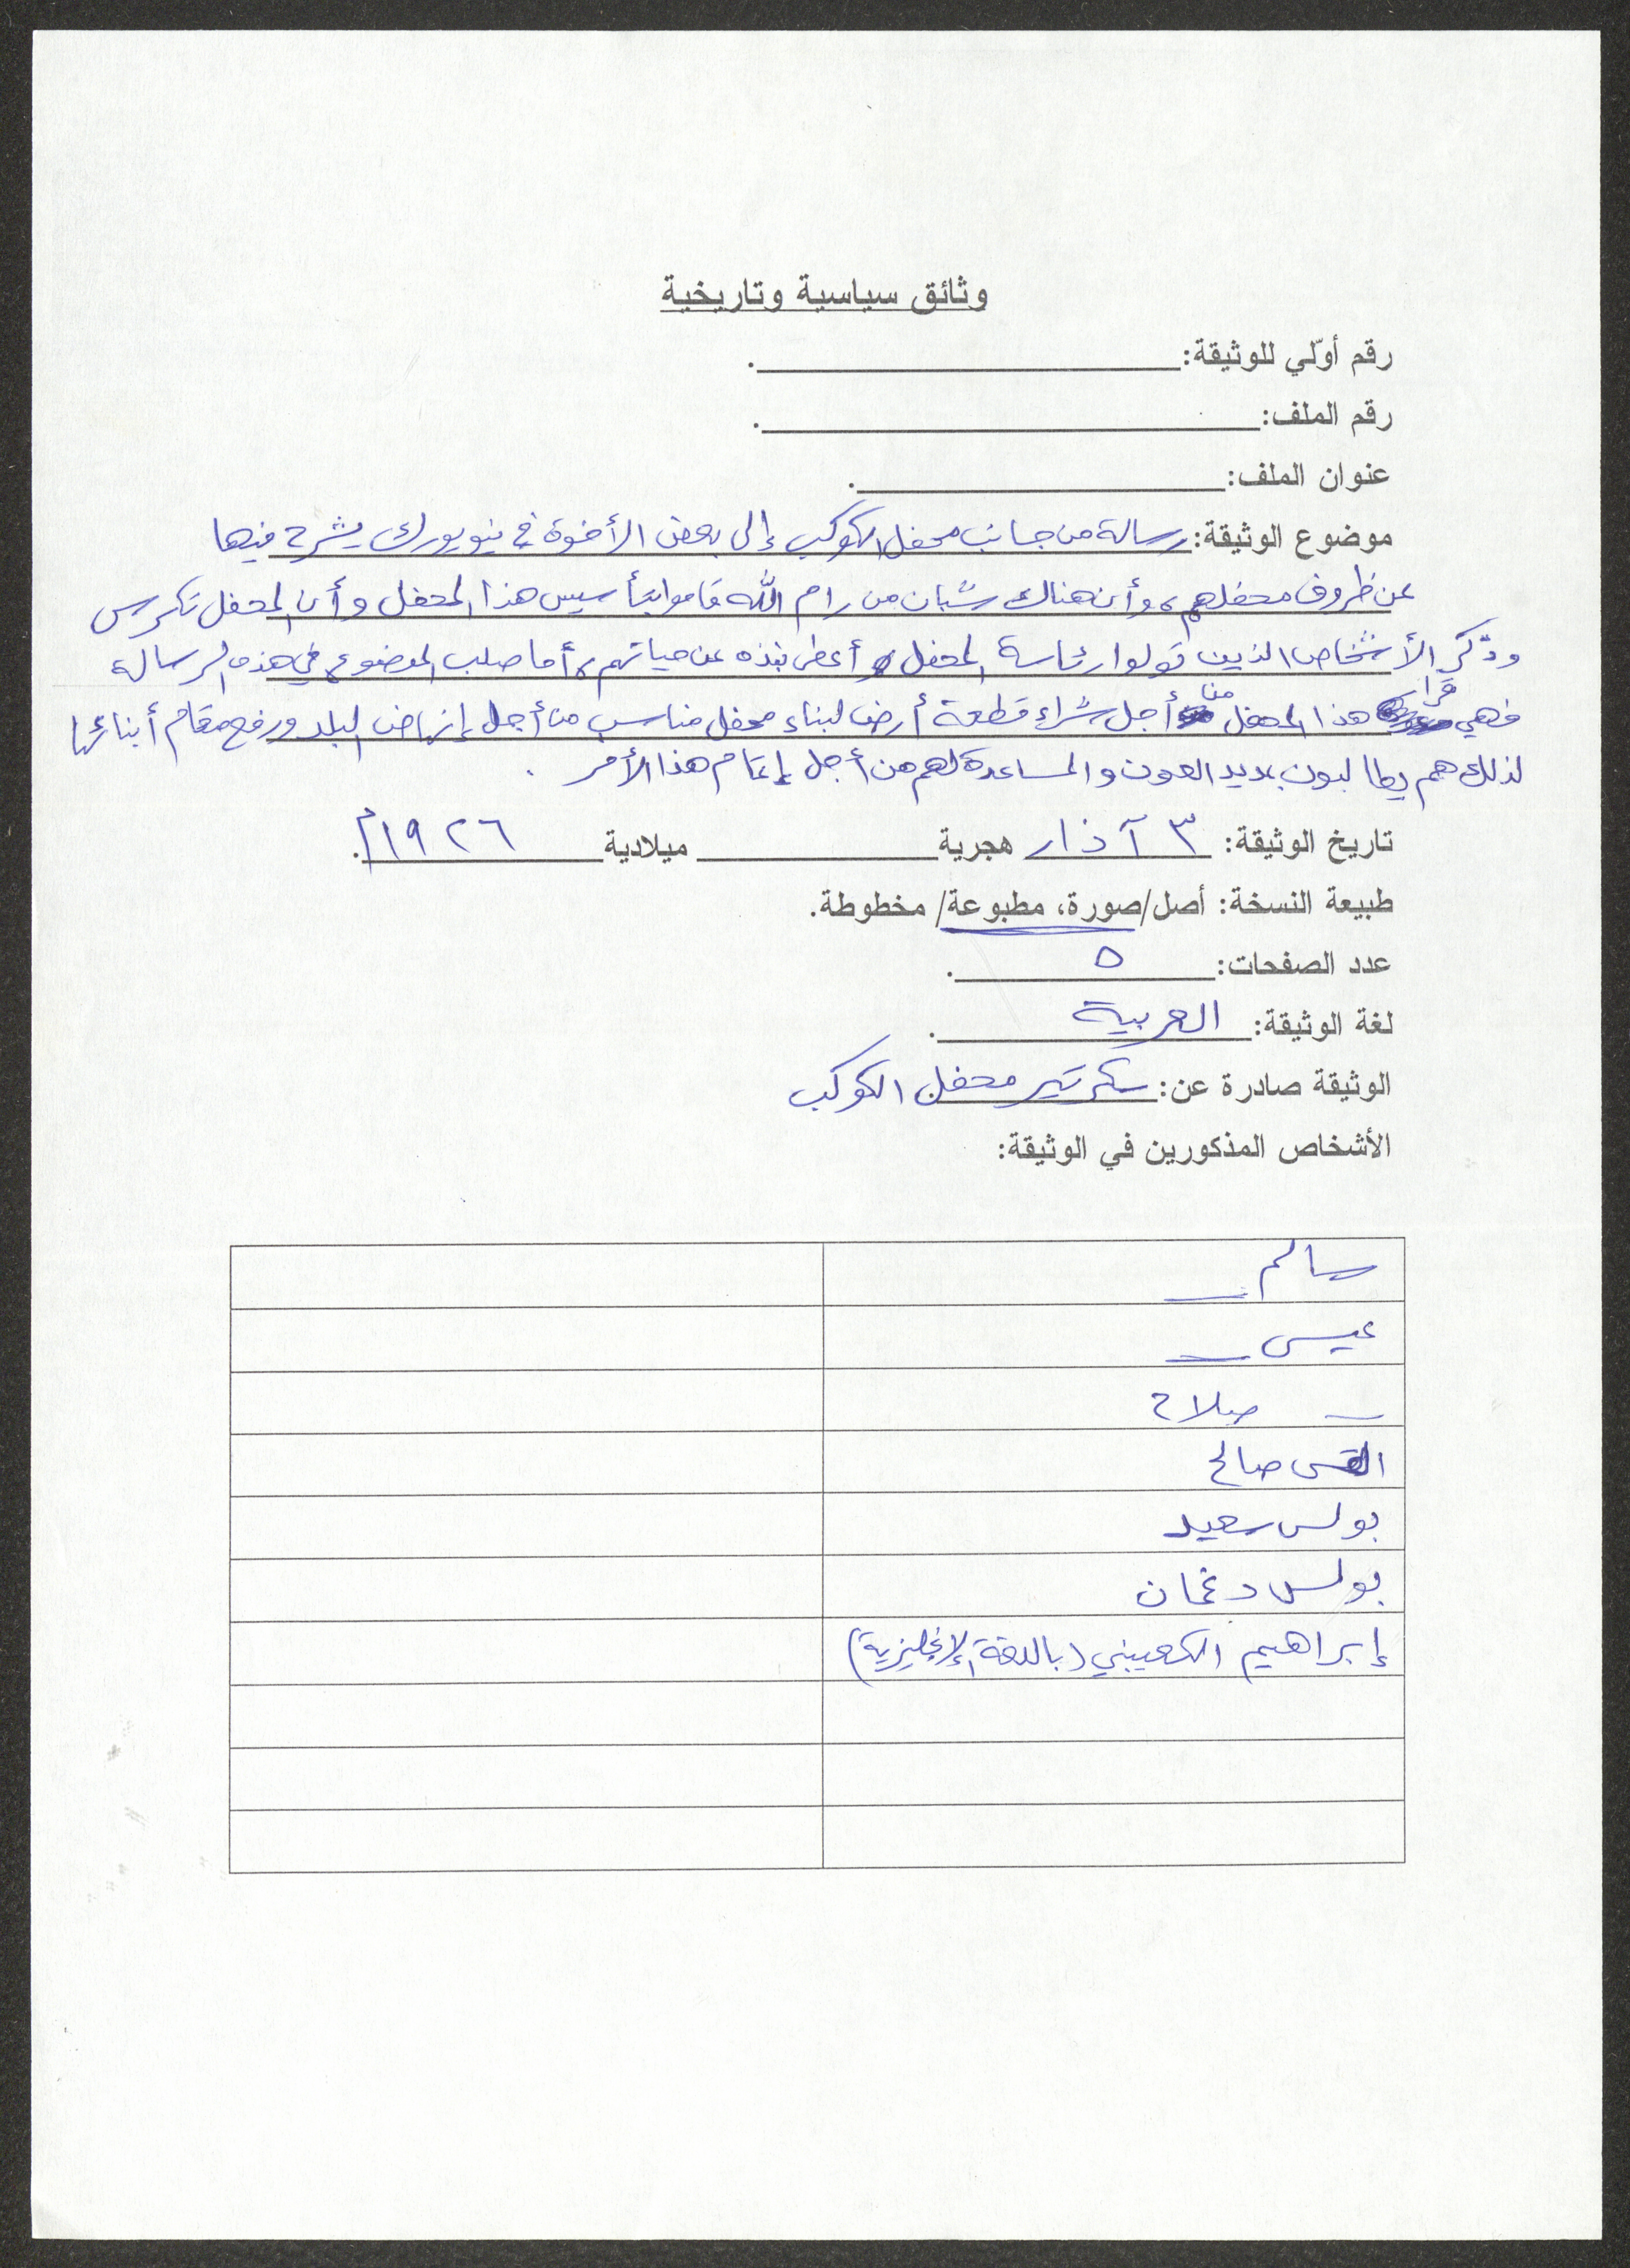 وثائق سياسية وتاريخية
رقم أوّلي للوثيقة: .
رقم الملف: .
عنوان الملف: .
موضوع الوثيقة: رسالة من جانب محفل الكوكب إلى بعض الأخوة في نيويورك يشرح فيها
عن ظروف محفلهم، وأن هناك شبان من رام الله قاموا بتأسيس هذا المحفل وأن المحفل تكرس
وذّكر الأشخاص الذين تولوا رئاسة المحفل و أعطى نبذه عن حياتهم، أما صلب الموضوع في هذه الرسالة
فهي قرار هذا المحفل من أجل شراء قطعة أرض لبناء محفل مناسب من أجل إنهاض البلد ورفع مقام أبنائها
لذلك هم يطالبون بديد العون والمساعدة لهم من أجل إتمام هذا الأمر .
تاريخ الوثيقة: ٣ آذار هجرية ميلادية ١٩٢٦م.
طبيعة النسخة: أصل/صورة، مطبوعة/ مخطوطة.
عدد الصفحات: ٥ .
لغة الوثيقة: العربية .
الوثيقة صادرة عن: سكرتير محفل الكوكب
الأشخاص المذكورين في الوثيقة:
سالم ــ
عيسى ــ
ــ صلاح
القس صالح
بولس سعيد
بولس دغمان
إبراهيم الكعيبني (باللغة الإنجليزية)